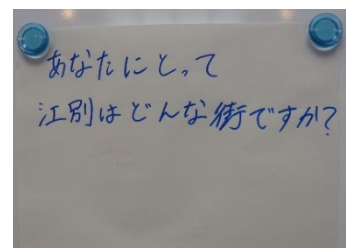 あなたにとって
江別はどんな街ですか?